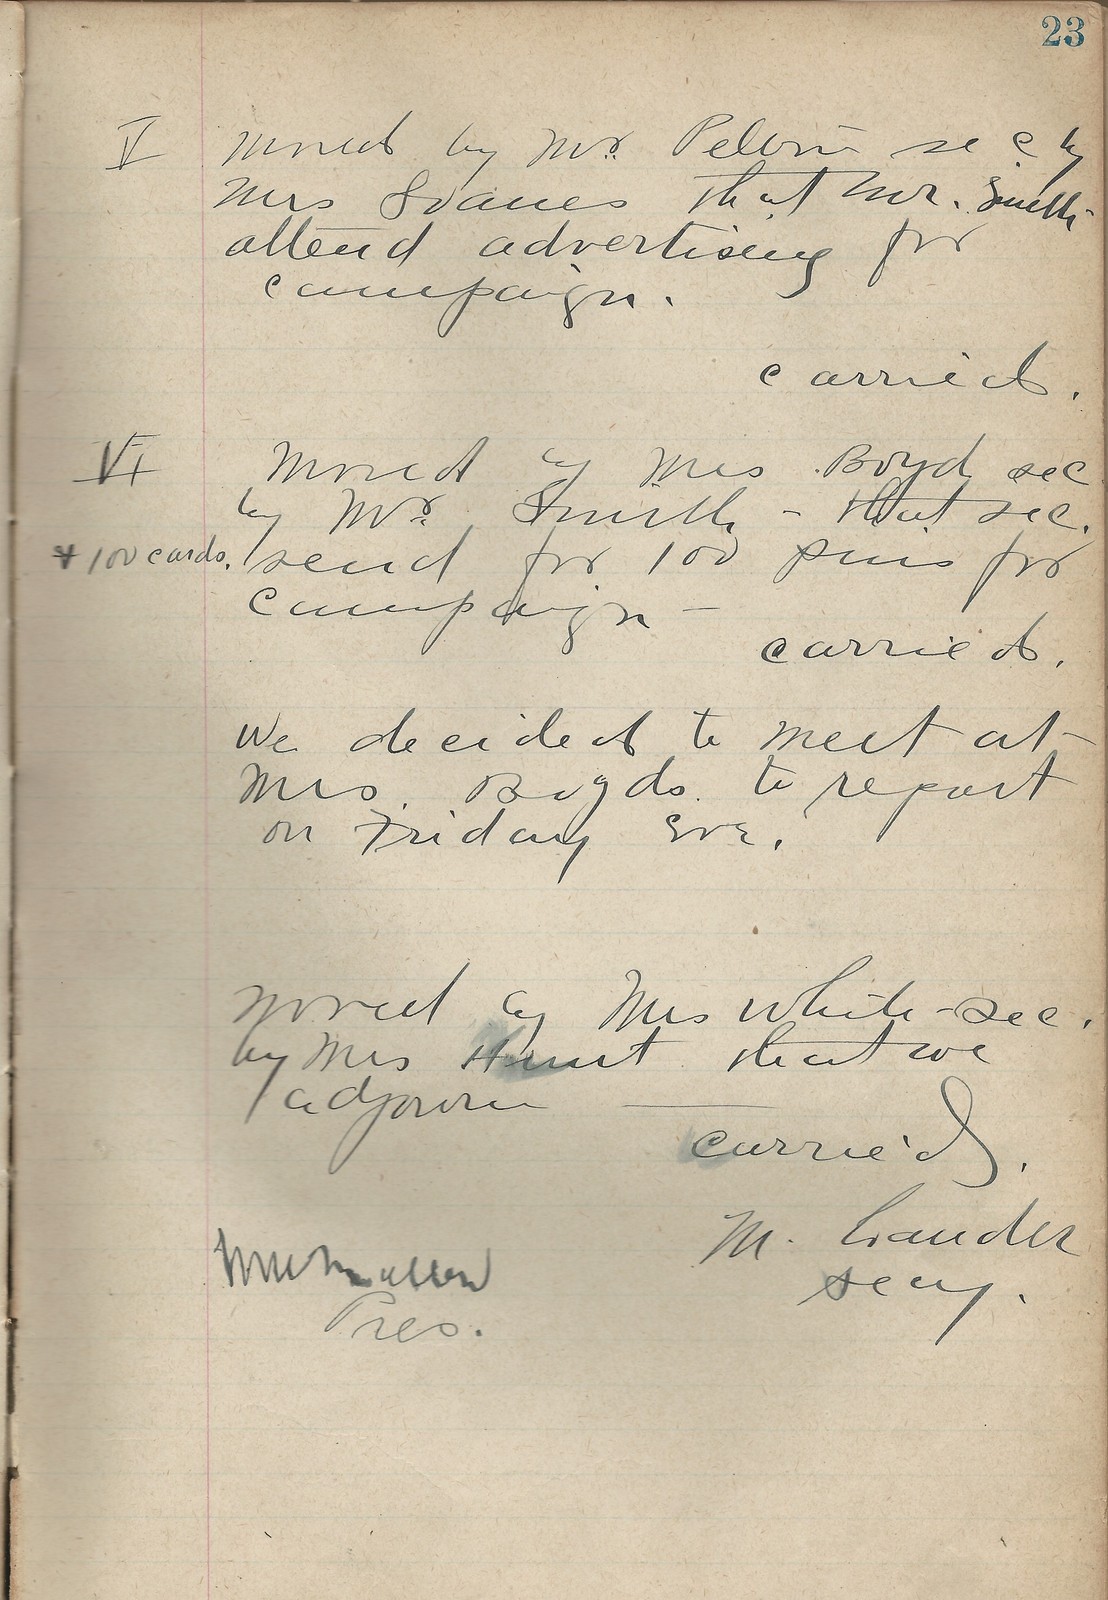 23
V moved by Mr. sec by
Mrs that Mr. Smith
attend advertising for
campaign.
carried.
VI Moved by Mrs Boyd sec
by Mr. Smith - that sec.
+ 100 cards. send for 100 pins for
campaign -
carried.
We decided to meet at
Mrs. Boyds. to report
on Friday Eve.
moved by Mrs White - sec.
by Mrs Hunt that we
adjourn
carried.
M.
secy.
Pres.